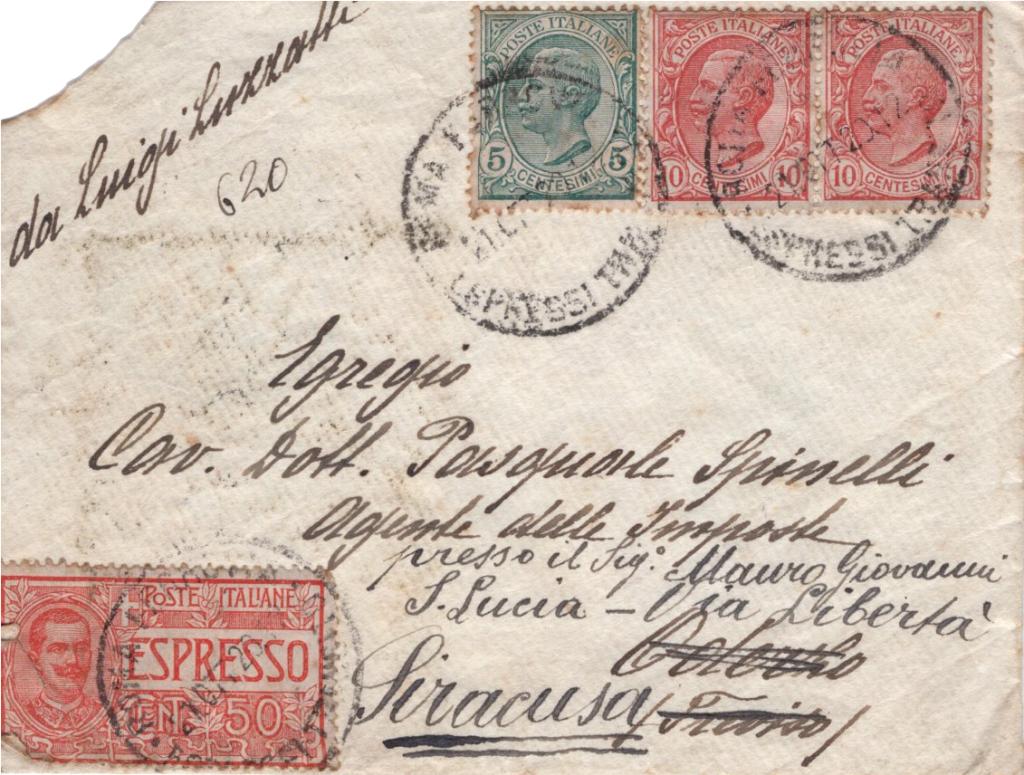 da Luigi Luzzatti
620
POSTE ITALIANE
5 CENTESIMI 5
POSTE ITALIANE
10 CENTESIMI 10
POSTE ITALIANE
10 CENTESIMI 10
ESPRESSI
ESPRESSI
Egregio
Cav. Dott. Pasquale Spinelli
Agente delle Imposte
presso il Sig. Mauro Giovanni
S. Lucia - Via Libertà
Siracusa
POSTE ITALIANE
ESPRESSO
CENT. 50